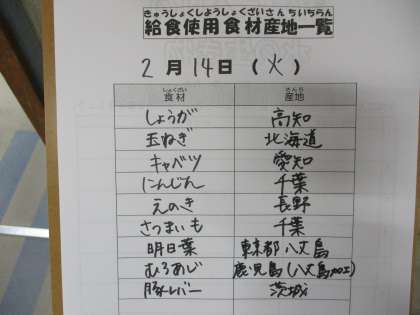 きゅうしょくしようしょくざいさんちいちらん
給食使用食材産地一覧
2月14日(火)
しょくざい さんち
食材 産地
しょうが 高知
玉ねぎ 北海道
キャベツ 愛知
にんじん 千葉
えのき 長野
さつまいも 千葉
明日葉 東京都八丈島
むろあじ 鹿児島(八丈島加工)
豚レバー 茨城